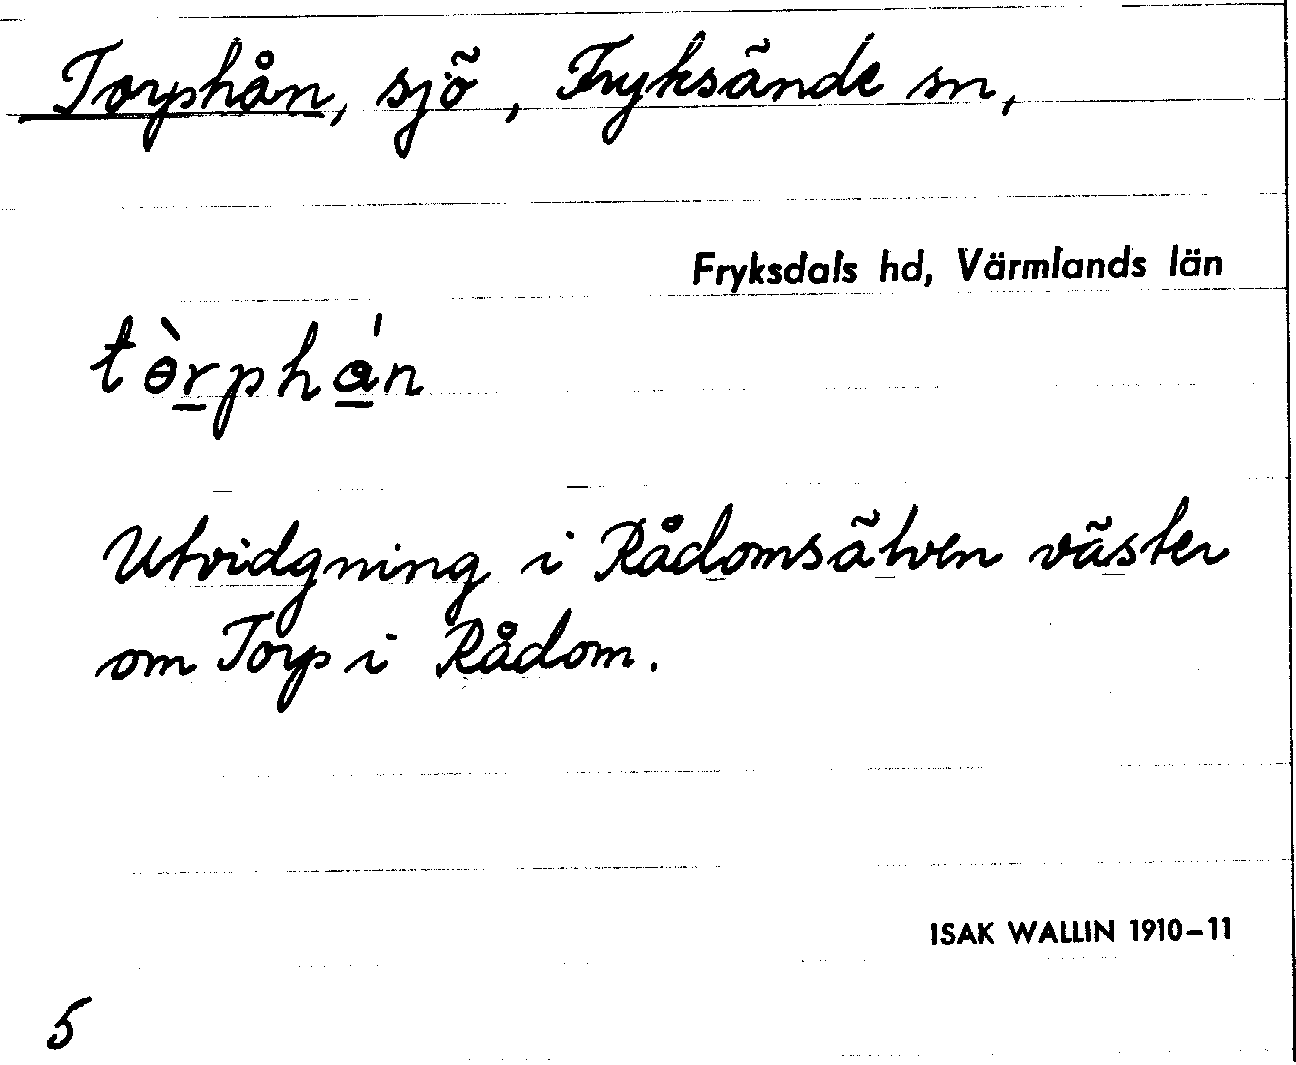 Torphån, sjö, Fryksände sn,
Fryksdals hd, Värmlands län
tɵ̀r̲phá̲n
Utvidgning i Rådomsälven väster
om Torp i Rådom.
ISAK WALLIN 1910–11
5